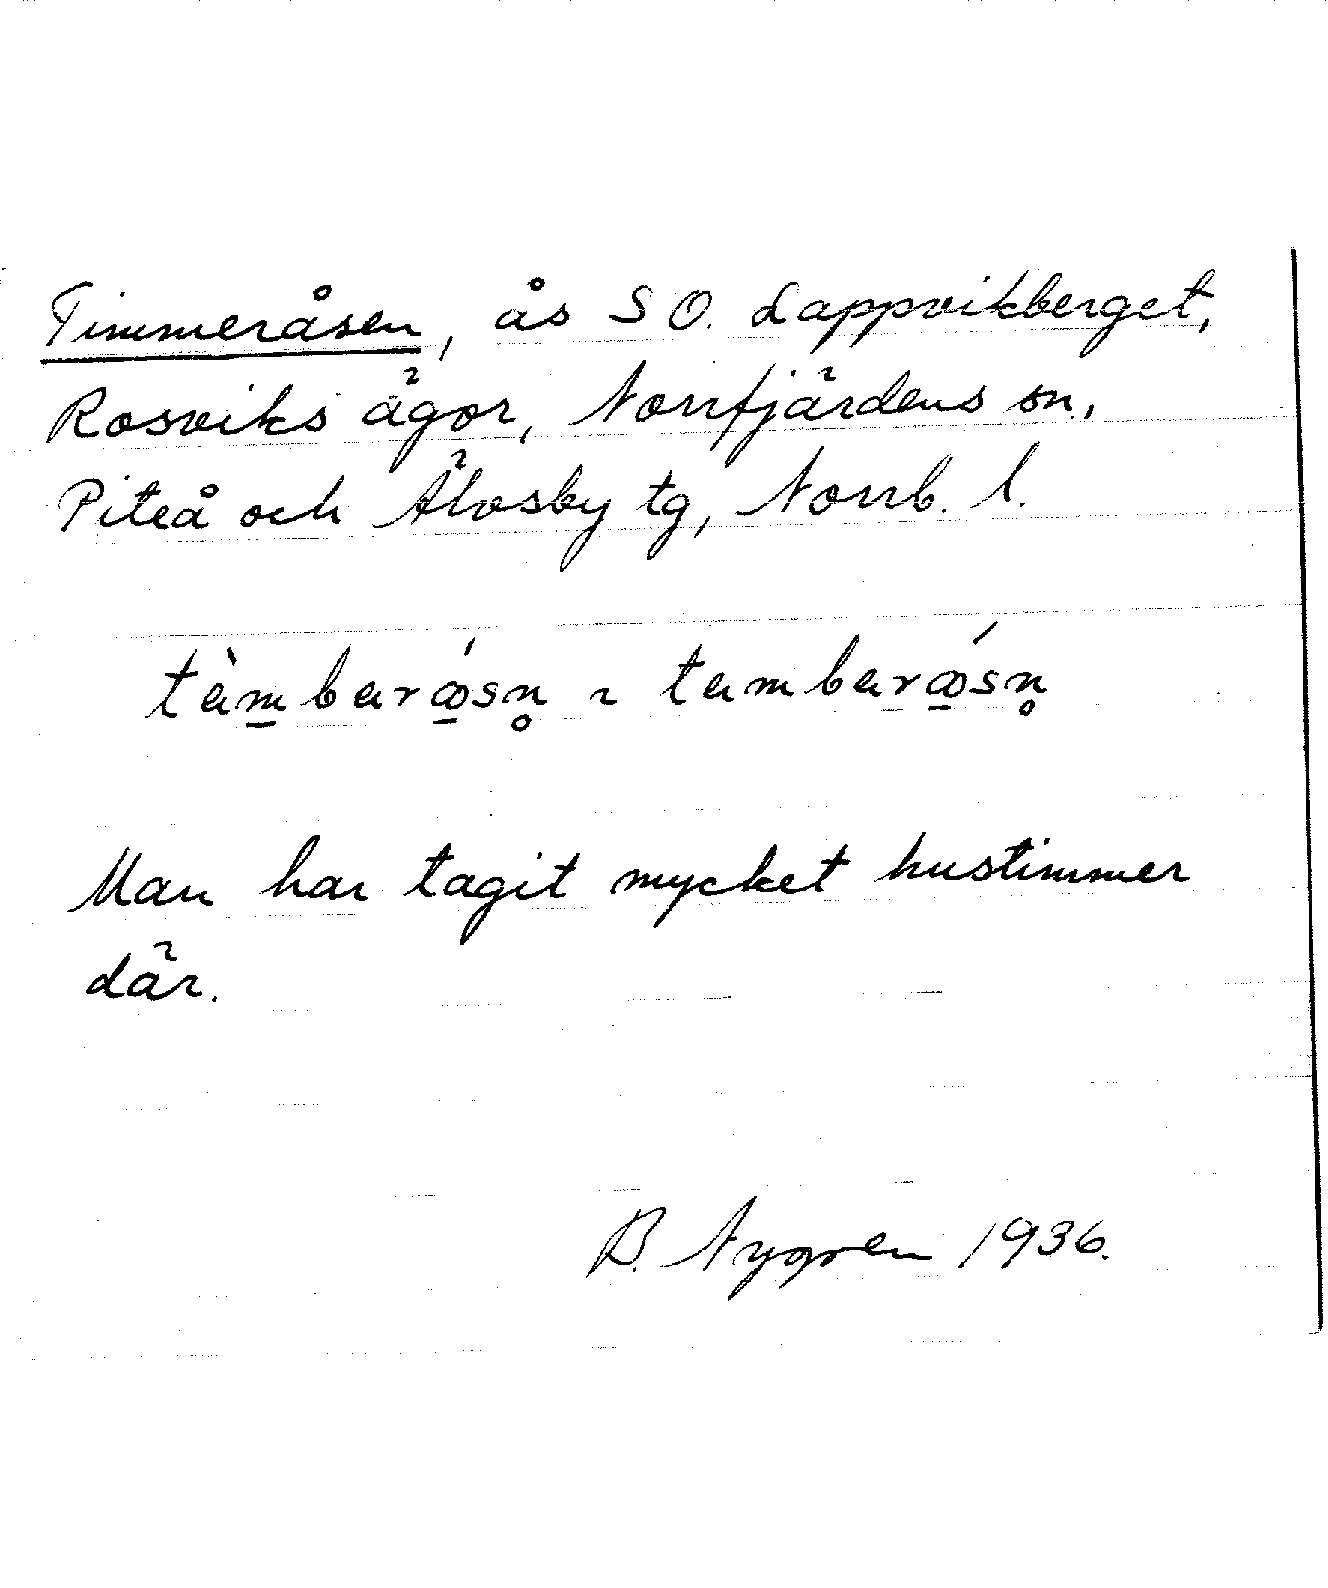 Timmeråsen, ås S O. Lappvikberget,
Rosviks ägor, Norrfjärdens sn.,
Piteå och Älvsby tg, Norrb. l.
tὰm̲barǫ́sn̥ ~ tambarǫ́sn̥
Man har tagit mycket hustimmer
där.
B. Nygren 1936.